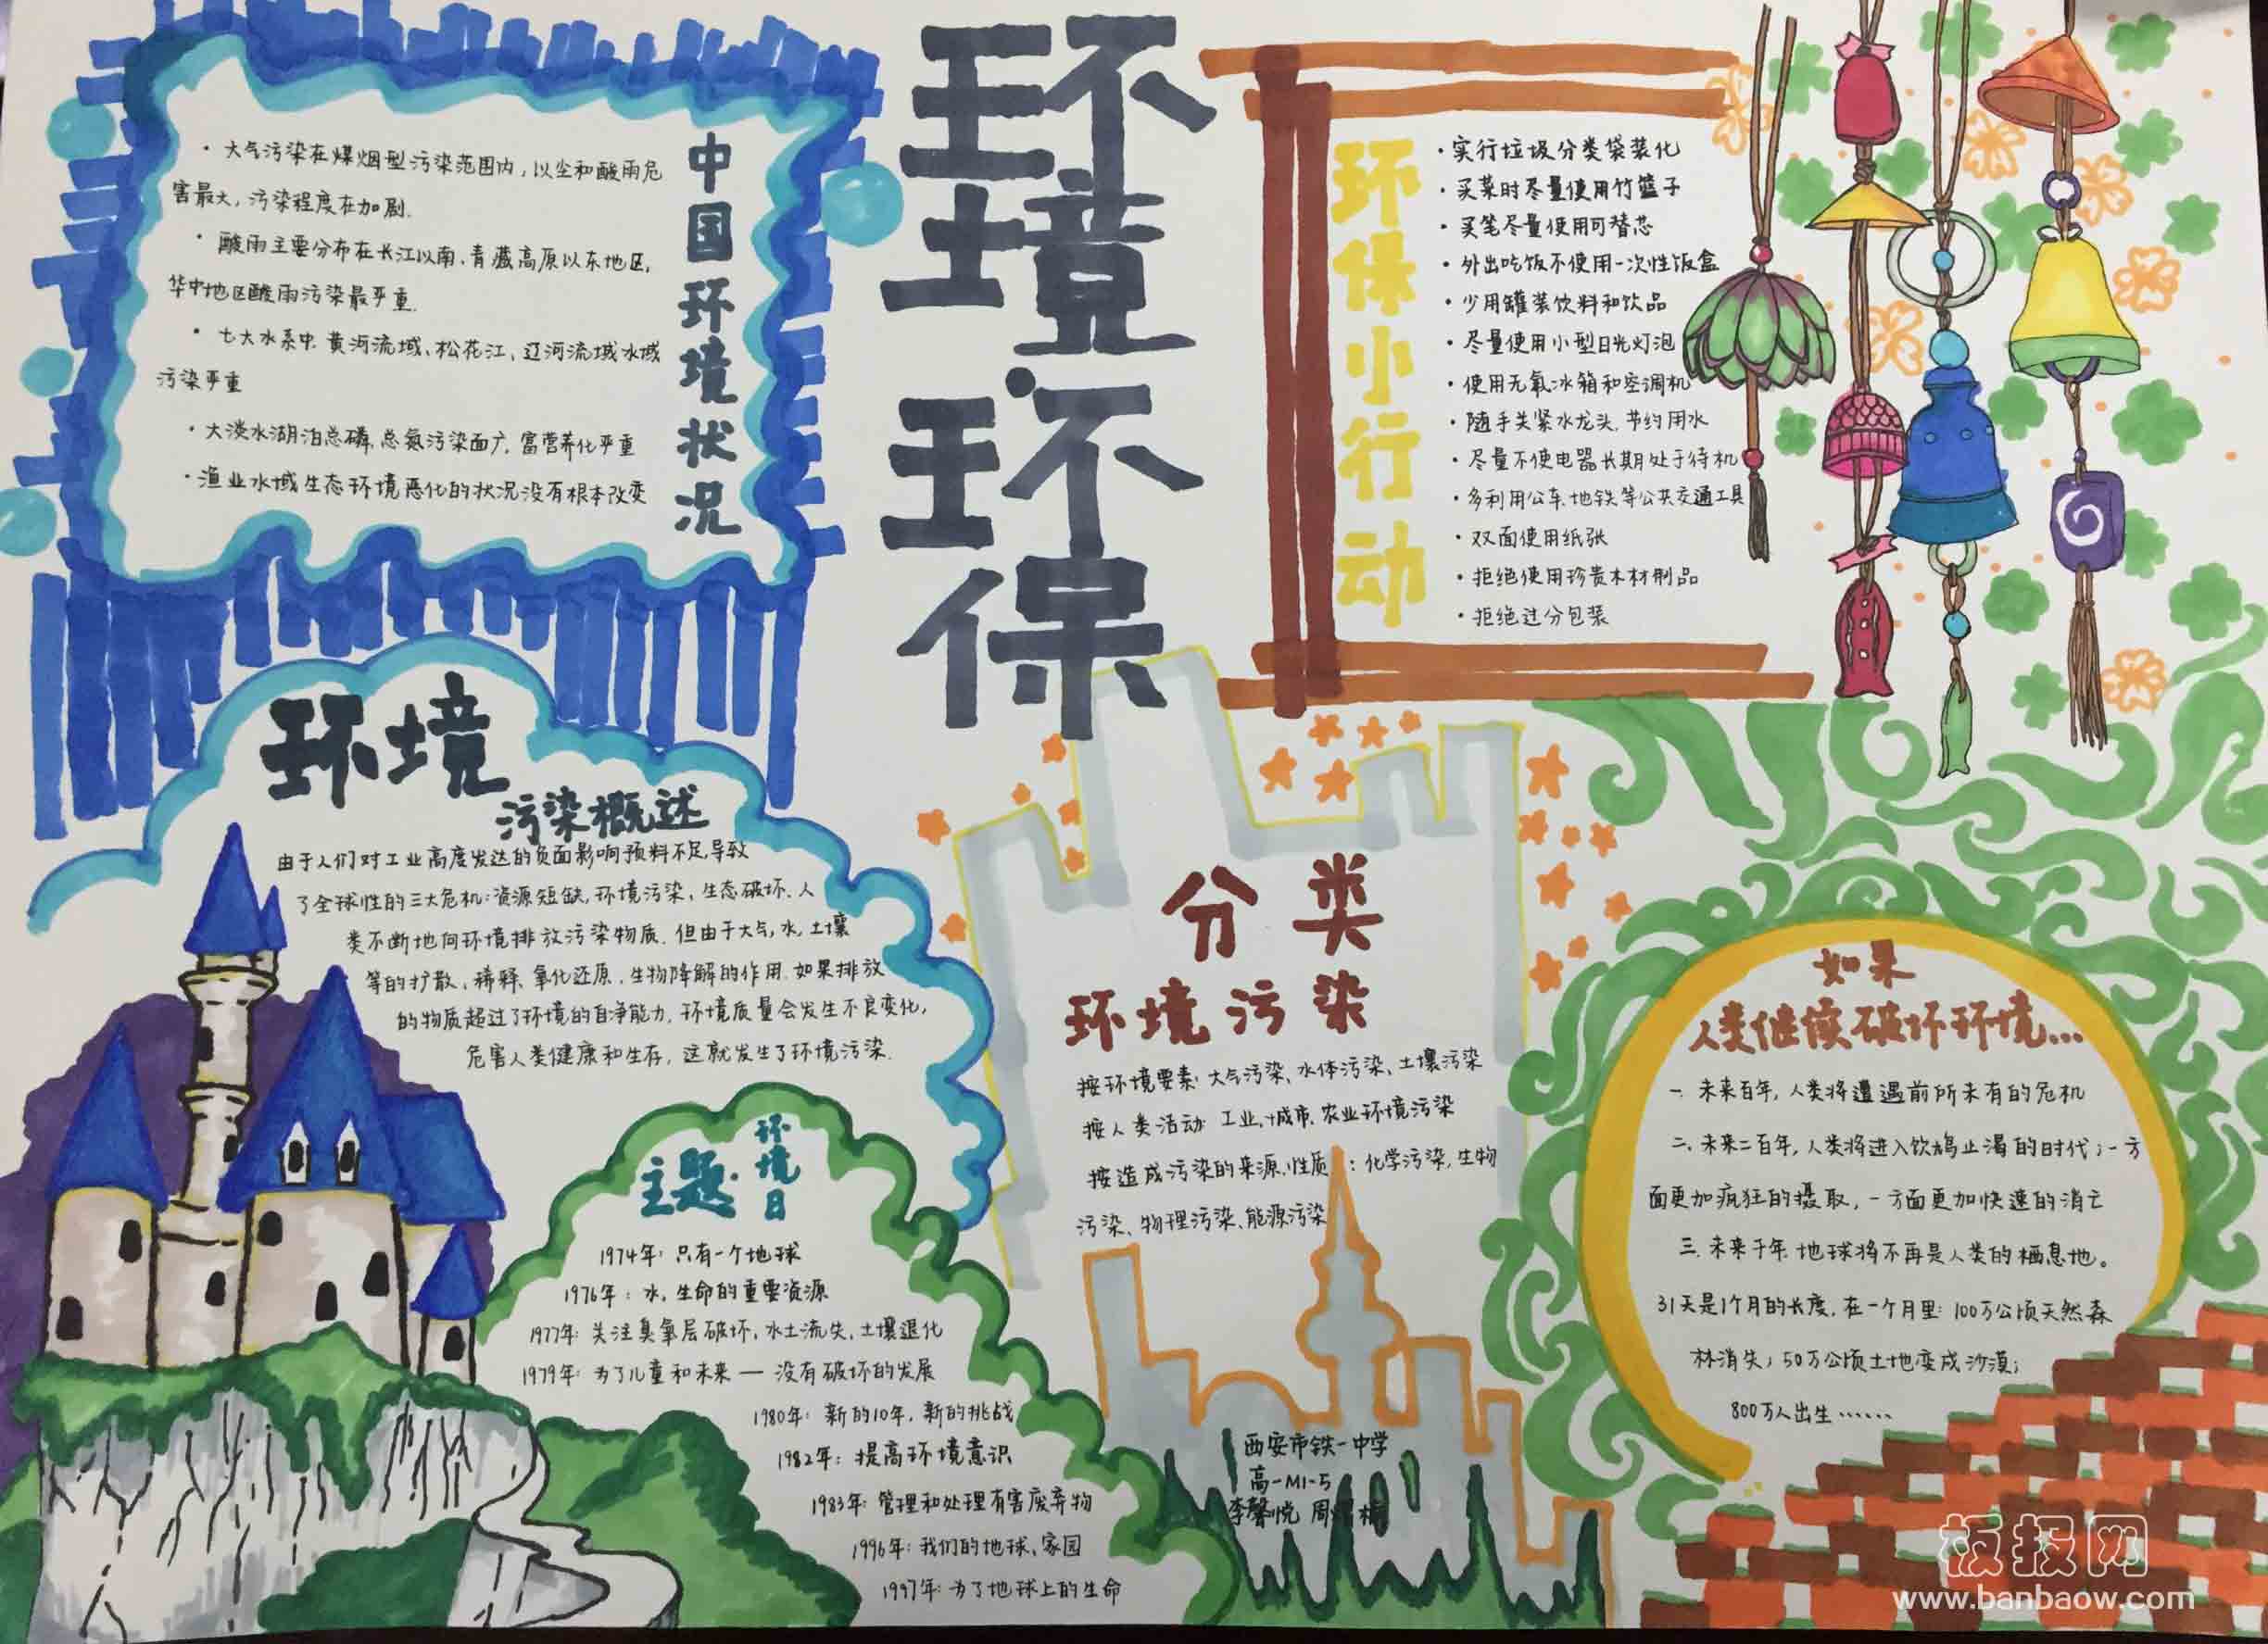 环境环保
中国环境状况
·大气污染在煤烟型污染范围内，以尘和酸雨危
害最大，污染程度在加剧.
·酸雨主要分布在长江以南、青藏高原以东地区，
华中地区酸雨污染最严重.
·七大水系中 黄河流域、松花江、辽河流域水域
污染严重
·大淡水湖泊总磷，总氮污染面广，富营养化严重
·渔业水域生态环境恶化的状况没有根本改变
环保小行动
·实行垃圾分类袋装化
·买菜时尽量使用竹篮子
·买笔尽量使用可替芯
·外出吃饭不使用一次性饭盒
·少用罐装饮料和饮品
·尽量使用小型日光灯泡
·使用无氧冰箱和空调机
·随手关紧水龙头，节约用水
·尽量不使电器长期处于待机
·多利用公车、地铁等公共交通工具
·双面使用纸张
·拒绝使用珍贵木材制品
·拒绝过分包装
环境
污染概述
由于人们对工业高度发达的负面影响预料不足，导致
了全球性的三大危机：资源短缺，环境污染，生态破坏. 人
类不断地向环境排放污染物质. 但由于大气，水，土壤
等的扩散、稀释、氧化还原、生物降解的作用. 如果排放
的物质超过了环境的自净能力，环境质量会发生不良变化，
危害人类健康和生存，这就发生了环境污染.
主题·环境日
1974年：只有一个地球
1976年：水，生命的重要资源
1977年：关注臭氧层破坏，水土流失，土壤退化
1979年：为了儿童和未来 — 没有破坏的发展
1980年：新的10年，新的挑战
1982年：提高环境意识
1983年：管理和处理有害废弃物
1996年：我们的地球、家园
1997年：为了地球上的生命
分类
环境污染
按环境要素：大气污染、水体污染、土壤污染
按人类活动：工业，城市，农业环境污染
按造成污染的来源、性质：化学污染，生物
污染、物理污染、能源污染
西安市铁一中学
高一M1-5
李馨悦 周
如果
人类继续破坏环境…
一. 未来百年，人类将遭遇前所未有的危机
二. 未来二百年，人类将进入饮鸩止渴的时代；一方
面更加疯狂的摄取，一方面更加快速的消亡
三. 未来千年 地球将不再是人类的栖息地。
31天是1个月的长度，在一个月里：100万公顷天然森
林消失；50万公顷土地变成沙漠；
800万人出生……
板报网
www.banbaow.com